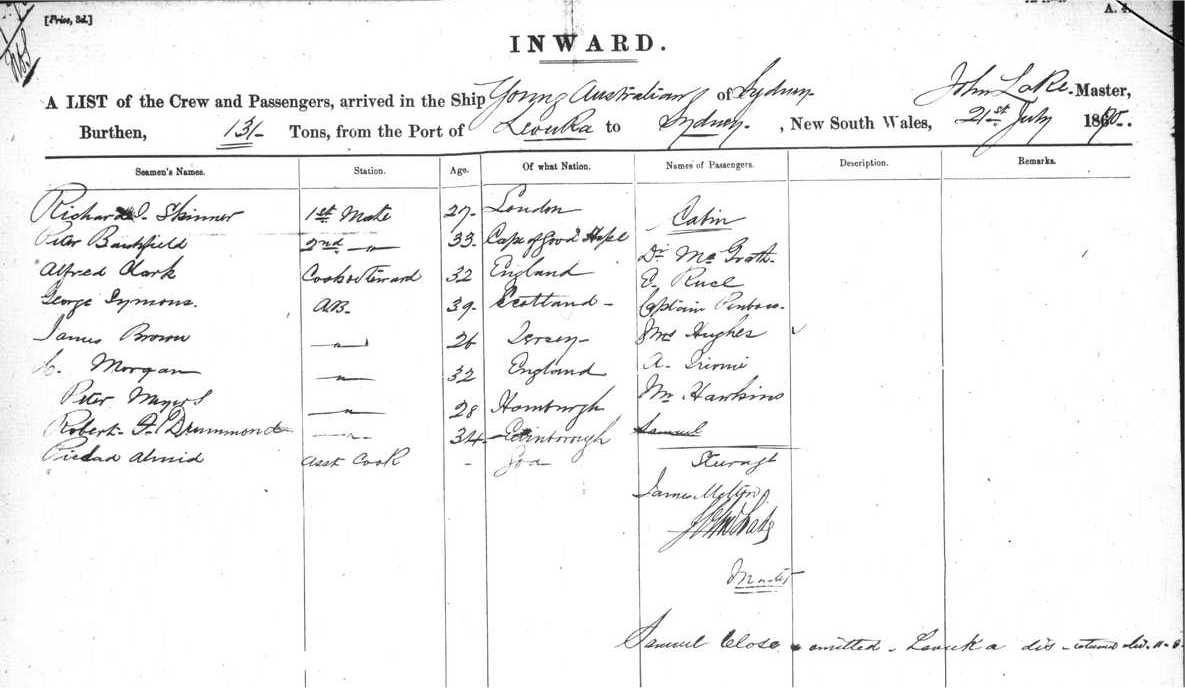 [Price, 3d.] A. 4.
INWARD.
A LIST of the Crew and Passengers, arrived in the Ship Young Australian of Sydney John Lake Master,
Burthen, 131 Tons, from the Port of Levuka to Sydney, New South Wales, 21st July 1870.
Seamen's Names. Station. Age. Of what Nation. Names of Passengers. Description. Remarks.
Richard Skinner 1st Mate 27 London Cabin
Peter 2nd " 33 Cape of Good Hope Dr Mc Grath
Alfred Clark Cook & Steward 32 England
George Symons. A.B. 39 Scotland Captain
James Brown " 26 Jersey Mrs Hughes
C. Morgan " 32 England A.
Peter Meyers " 28 Hamburgh Mr Hawkins
Robert Drummond " 34 Edinborough Samuel
Almid Asst Cook - Goa Steerage
James
John Lake
Master
Samuel Close omitted - Levuka dis